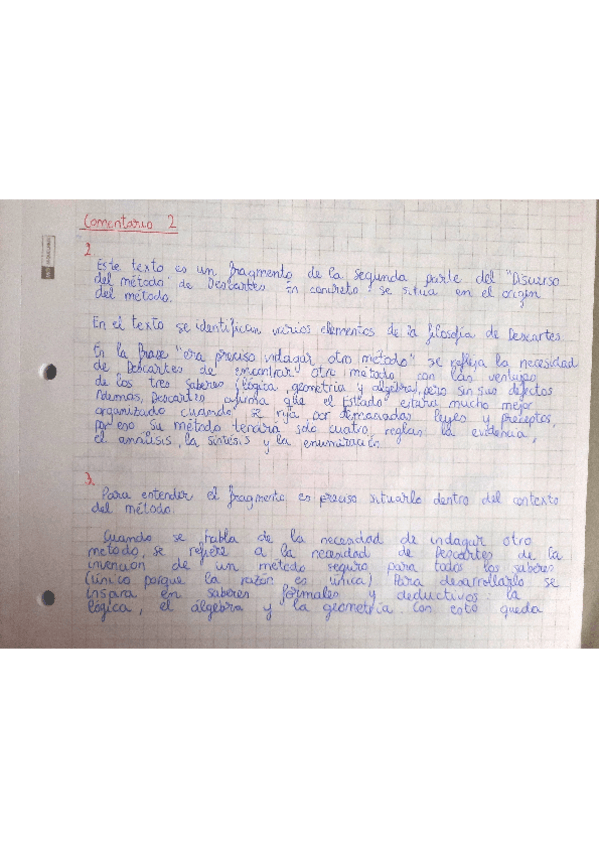 Comentario 2
2.
Este texto es un fragmento de la segunda parte del "Discurso
del método" de Descartes. En concreto se situa en el origen
del método.
En el texto se identifican varios elementos de la filosofía de Descartes
En la frase "era preciso indagar otro método" se refleja la necesidad
de Descartes de encontrar otro método con las ventajas
de los tres saberes (lógica, geometría y álgebra), pero sin sus defectos
Además, Descartes afirma que el Estado estará mucho mejor
organizado cuando se rija por demasiadas leyes y preceptos,
por eso su método tendrá solo cuatro reglas: la evidencia,
el análisis, la síntesis y la enumeración.
3.
Para entender el fragmento es preciso situarlo dentro del contexto
del método.
Cuando se habla de la necesidad de indagar otro
método, se refiere a la necesidad de Descartes de la
invención de un método seguro para todos los saberes
(único porque la razón es única) Para desarrollarlo se
inspira en saberes formales y deductivos: la
lógica, el álgebra y la geometría. Con esto queda